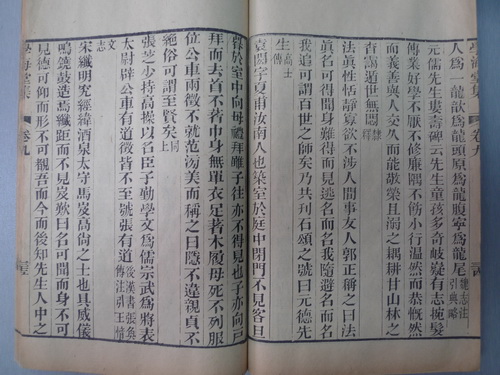 學海堂集 卷九
人爲一龍歆爲龍頭原爲龍腹寧爲龍尾魏志注引典略
元儒先生婁壽碑云先生童孩多奇岐嶷有志捥髮
傳業好學不厭不修廉隅不飭小行溫然而恭慨然
而義善與人交久而能敬榮且溺之耦耕甘山林之
杳靄遁世無悶隸釋
法眞性恬靜寡欲不涉人間事友人郭正稱之曰法
眞名可得聞身難得而見逃名而名我隨避名而名
我追可謂百世之師矣乃共刊石頌之號曰元德先
生高士傳
袁閎字夏甫汝南人也築室於庭中閉門不見客旦
暮於室中向母禮拜雖子往亦不得見也子亦向戶
拜而去首不著巾身無單衣足著木履母死不列服
位公車兩徵不就范滂美而稱之曰隱不違親貞不
絕俗可謂至賢矣同上
張芝少持高操以名臣子勤學文爲儒宗武爲將表
太尉辟公車有道徵皆不至號張有道後漢書張奐傳注引王愔
文志
宋纖明究經緯酒泉太守馬岌高尚之士也具威儀
鳴鐃鼓造焉纖距而不見岌歎曰名可聞而身不可
見德可仰而形不可覩吾而今而後知先生人中之
學海堂集 卷九